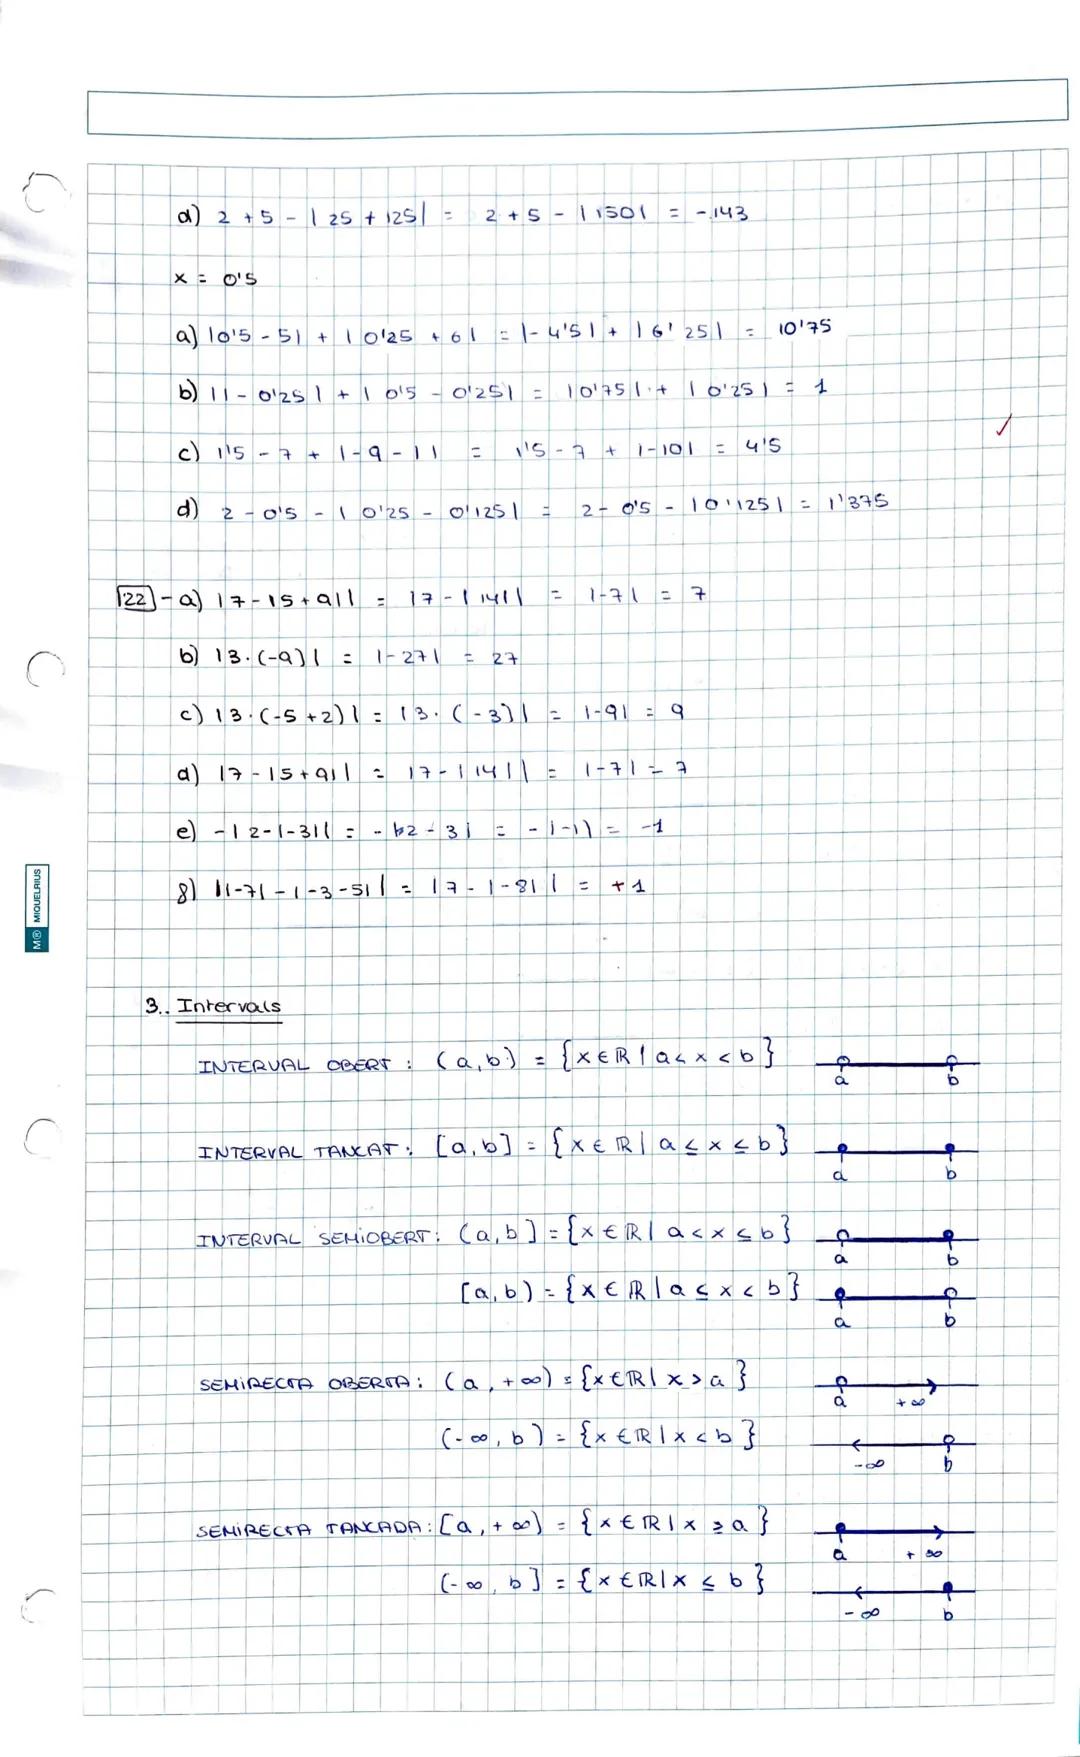 d) 2 + 5 - | 25 + 125 | = 2 + 5 - | 150 | = -143
x = 0'5
a) |0'5 - 5| + | 0'25 + 6 | = |-4'5 | + | 6'25 | = 10'75
b) |1 - 0'25 | + | 0'5 - 0'25 | = |0'75 | + | 0'25 | = 1
c) 1'5 - 7 + |-9 - 1 | = 1'5 - 7 + |-10| = 4'5
d) 2 - 0'5 - | 0'25 - 0'125 | = 2 - 0'5 - | 0'125 | = 1'375
22 - a) |7 - |5 + 9|| = |7 - |14|| = |-7| = 7
b) |3·(-9)| = |-27| = 27
c) |3·(-5 + 2)| = |3·(-3)| = |-9| = 9
d) |7 - |5 + 9|| = |7 - |14|| = |-7| = 7
e) -| 2 - |-3|| = - |2 - 3| = - |-1| = -1
g) ||-7| - |-3 - 5|| = |7 - |-8|| = +1
M® MIQUELRIUS
3.. Intervals
INTERVAL OBERT : (a,b) = {x ∈ ℝ | a < x < b}
a b
INTERVAL TANCAT : [a,b] = {x ∈ ℝ | a ≤ x ≤ b}
a b
INTERVAL SEMIOBERT : (a,b] = {x ∈ ℝ | a < x ≤ b}
a b
[a,b) = {x ∈ ℝ | a ≤ x < b}
a b
SEMIRECTA OBERTA : (a, +∞) = {x ∈ ℝ | x > a}
a +∞
(-∞, b) = {x ∈ ℝ | x < b}
-∞ b
SEMIRECTA TANCADA : [a, +∞) = {x ∈ ℝ | x ≥ a}
a +∞
(-∞, b] = {x ∈ ℝ | x ≤ b}
-∞ b